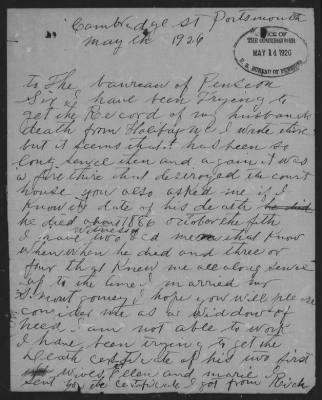 Cambridge st Portsmouth
may 1926
OFFICE OF
THE COMMISSIONER
MAY 14 1926
U.S. BUREAU OF PENSIONS
To The baureau of Pension
Sir I have been Trying to
get the Record of my husbands
death from Halifax NC I wrote there
but it seems that it has been so
long sence then and again it was
a fire there that destroyed the court
house you also asked me if I
Know the date of his death he did
he died about 1866 october the fifth
Witnesses
I gave two old men that Know
when he died and three or
four that Knew me all along sence
up to the time I married mr
S. montgomey I hope you will please
consider me as a widdow of
need I am not able to work
I have been trying to get the
Death certificate of his two first
wives Ellen and marie I
sent you the certificate I got from Rich